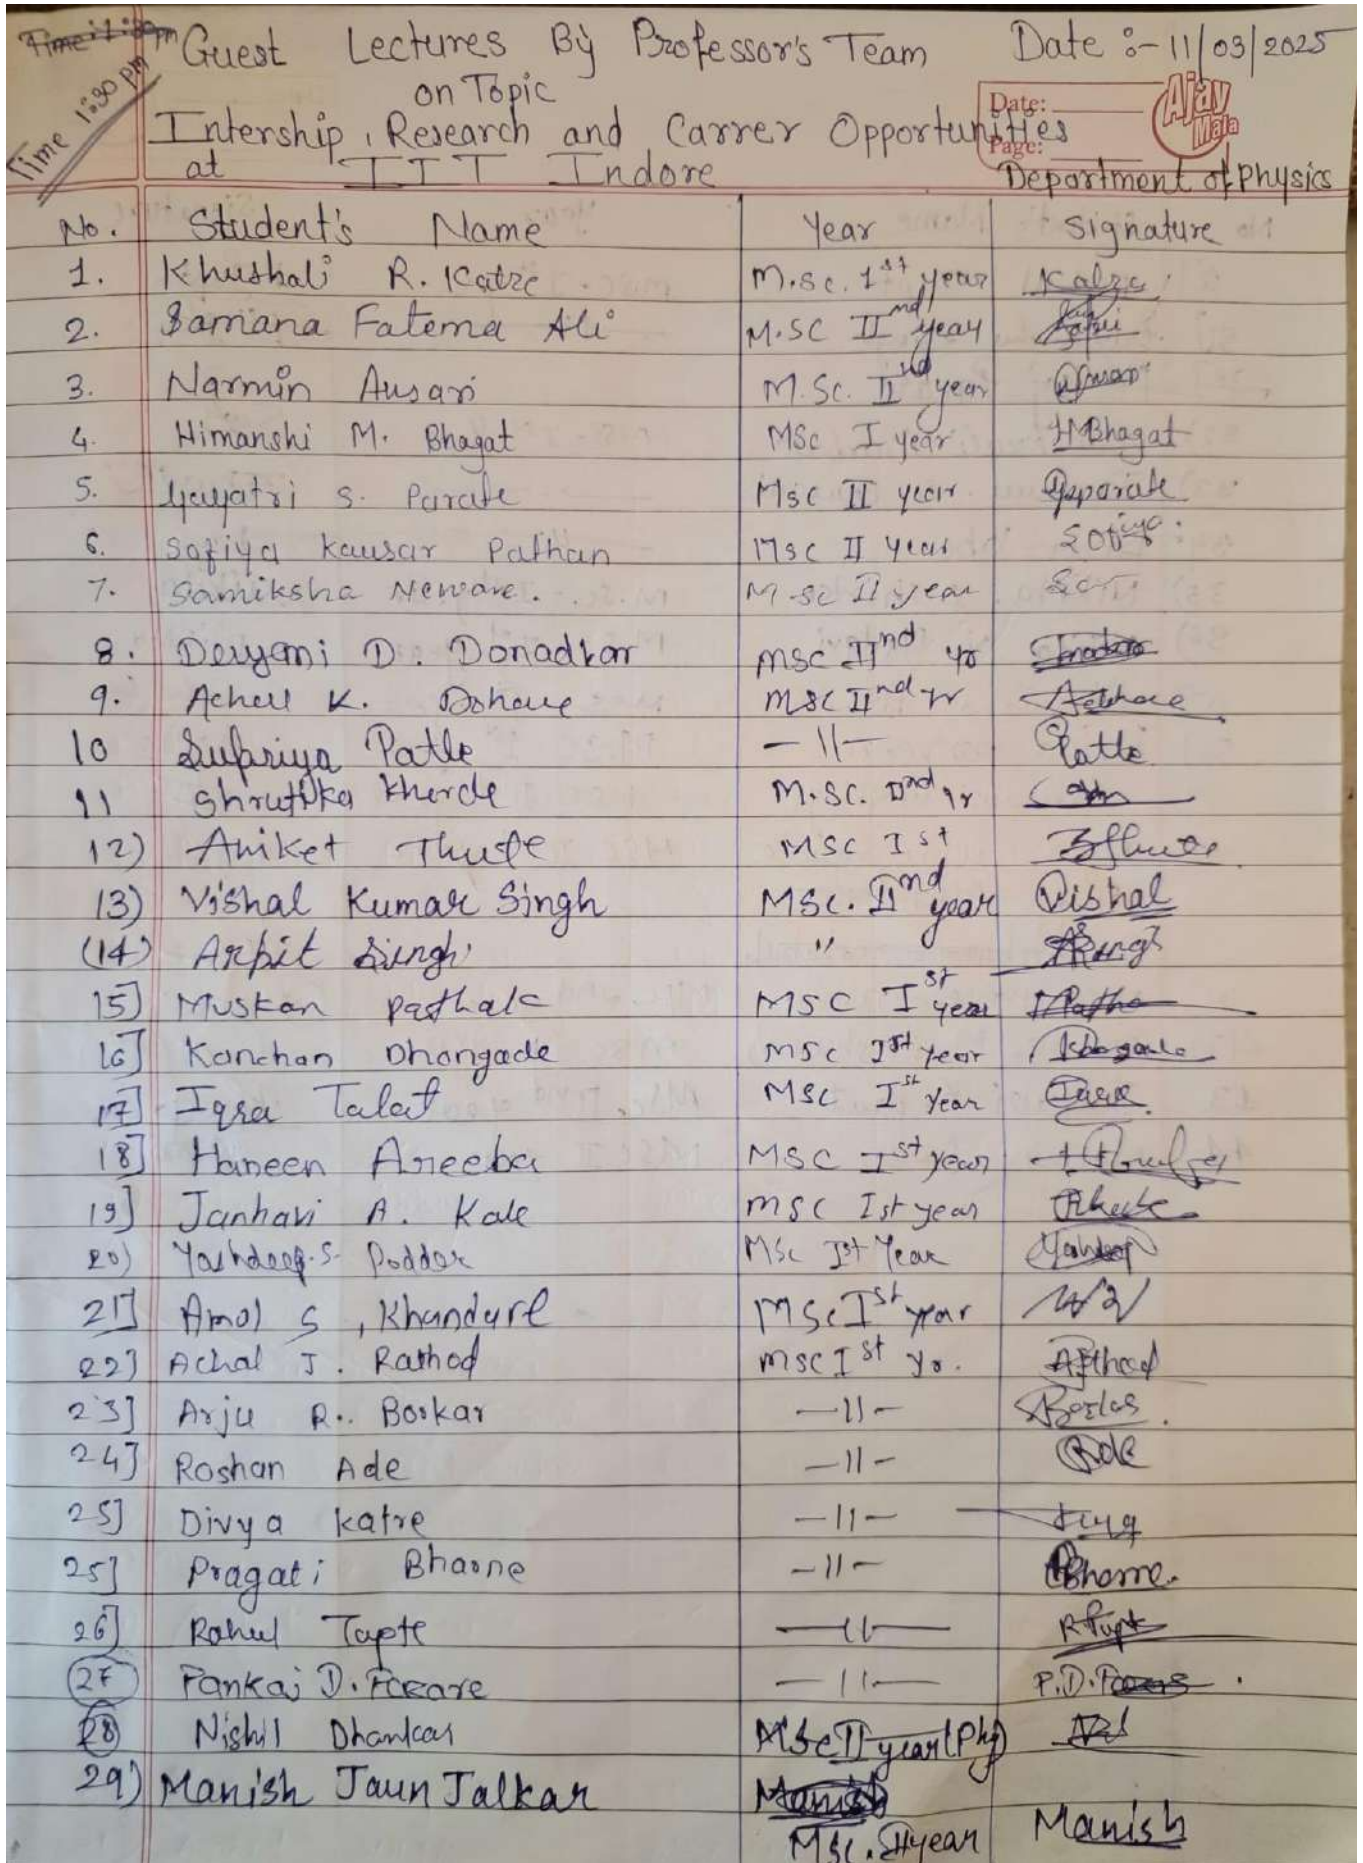 Time 1:30 pm
Guest Lectures By Professor's Team Date :- 11/03/2025
on Topic
Intership, Research and Carrer Opportunities
at IIT Indore
Date:
Page:
Ajay Mala
Department of Physics
No. Student's Name Year Signature
1. Khushali R. Katre M.sc. 1st year Katre
2. Samana Fatema Ali M.SC IInd year
3. Narmin Ansari M.Sc. IInd year
4. Himanshi M. Bhagat MSc I year HMBhagat
5. Gayatri S. Parate Msc II year Gsparate
6. Sofiya Kausar Pathan Msc II year Sofiya
7. Samiksha Neware. M.sc II year
8. Devyani D. Donadkar MSC IInd yr
9. Achal K. Dohave MSC IInd yr
10 Supriya Patle -11- Patle
11 Shrutika Kherde M.SC. IInd yr
12) Aniket Thute MSC Ist
13) Vishal Kumar Singh MSc. IInd year Vishal
(14) Arpit Singh " ASingh
15] Muskan Pathak MSC Ist year
16] Kanchan Dhongade MSC Ist year
17] Iqra Talat MSC Ist Year Iqra
18] Haneen Areeba MSC Ist year
19] Janhavi A. Kale MSC Ist year
20) Yashdeep.S. Poddar MSc Ist Year Yashdeep
21] Amol S, Khandare MSc Ist year
22] Achal J. Rathod MSC Ist Yr.
23] Arju R. Borkar -11-
24] Roshan Ade -11- RAde
25] Divya Katre -11-
25] Pragati Bharne -11- PBharne.
26] Rahul Tapte -11-
27 Pankaj D. -11- P.D.
28 Nishil Dhankar MSc II year (Phy)
29) Manish JaunJalkar Manish
MSc. II year Manish